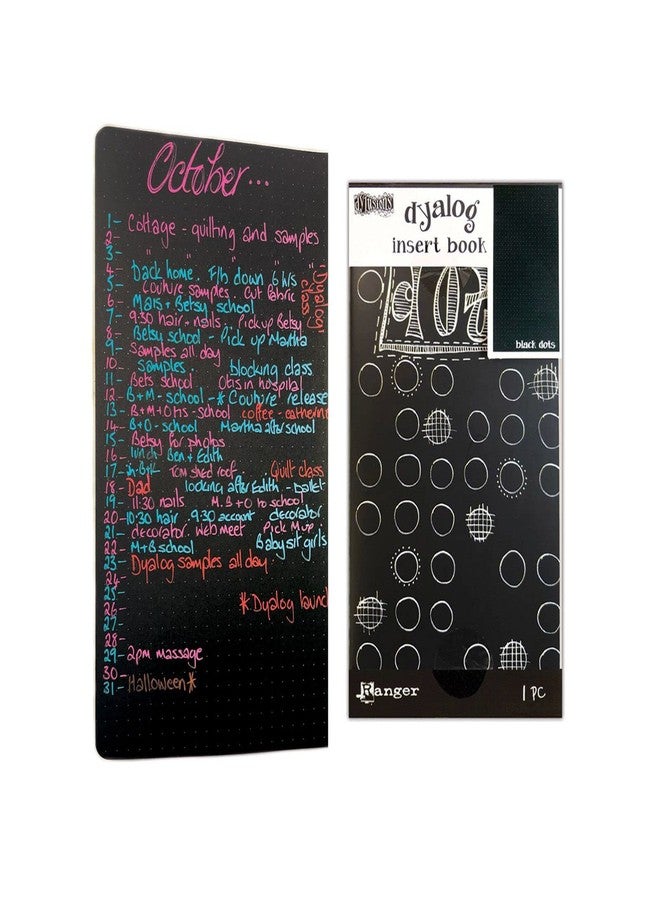 October...
1- Cottage - quilting and samples
2-
3- " " " "
4- Back home. Flb down 6 h/s
5- Couture samples. Cut fabric
6- Mais + Betsy school
"Dyalog class
7- 9:30 hair + nails Pick up Betsy
8- Betsy school - Pick up Martha
9- Samples all day
10- samples blocking class
11- Bets school Otis in hospital
12- B+M - school - * Couture release
13- B+M+Otis - school coffee - catherine
14- B+O - school Martha after school
15- Betsy for photos
16- lunch Ben + Edith
17- Tom shed roof. Quilt class
18- Dad looking after Edith - ballet
19- 11:30 nails M.B + O to school
20- 10:30 hair 9:30 account decorator
21- decorator. Web meet Pick M up
22- M+B school Baby sit girls
23- Dyalog samples all day
24-
25-
26- * Dyalog launch
27-
28-
29- 2pm massage
30-
31- Halloween *
dylusions
dyalog
insert book
black dots
Ranger
1 PC